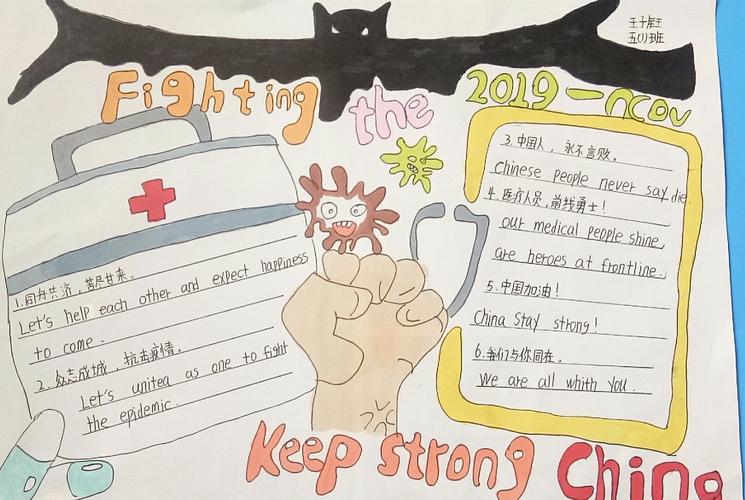 五(1)班
Fighting the 2019-nCoV
1.同舟共济,苦尽甘来。
Let's help each other and expect happiness
to come.
2.众志成城,抗击疫情。
Let's unitea as one to fight
the epidemic.
3.中国人,永不言败。
Chinese people never say die.
4.医疗人员,前线勇士!
our medical people shine,
are heroes at frontline.
5.中国加油!
China stay strong!
6.我们与你同在。
We are all whith you.
Keep strong China